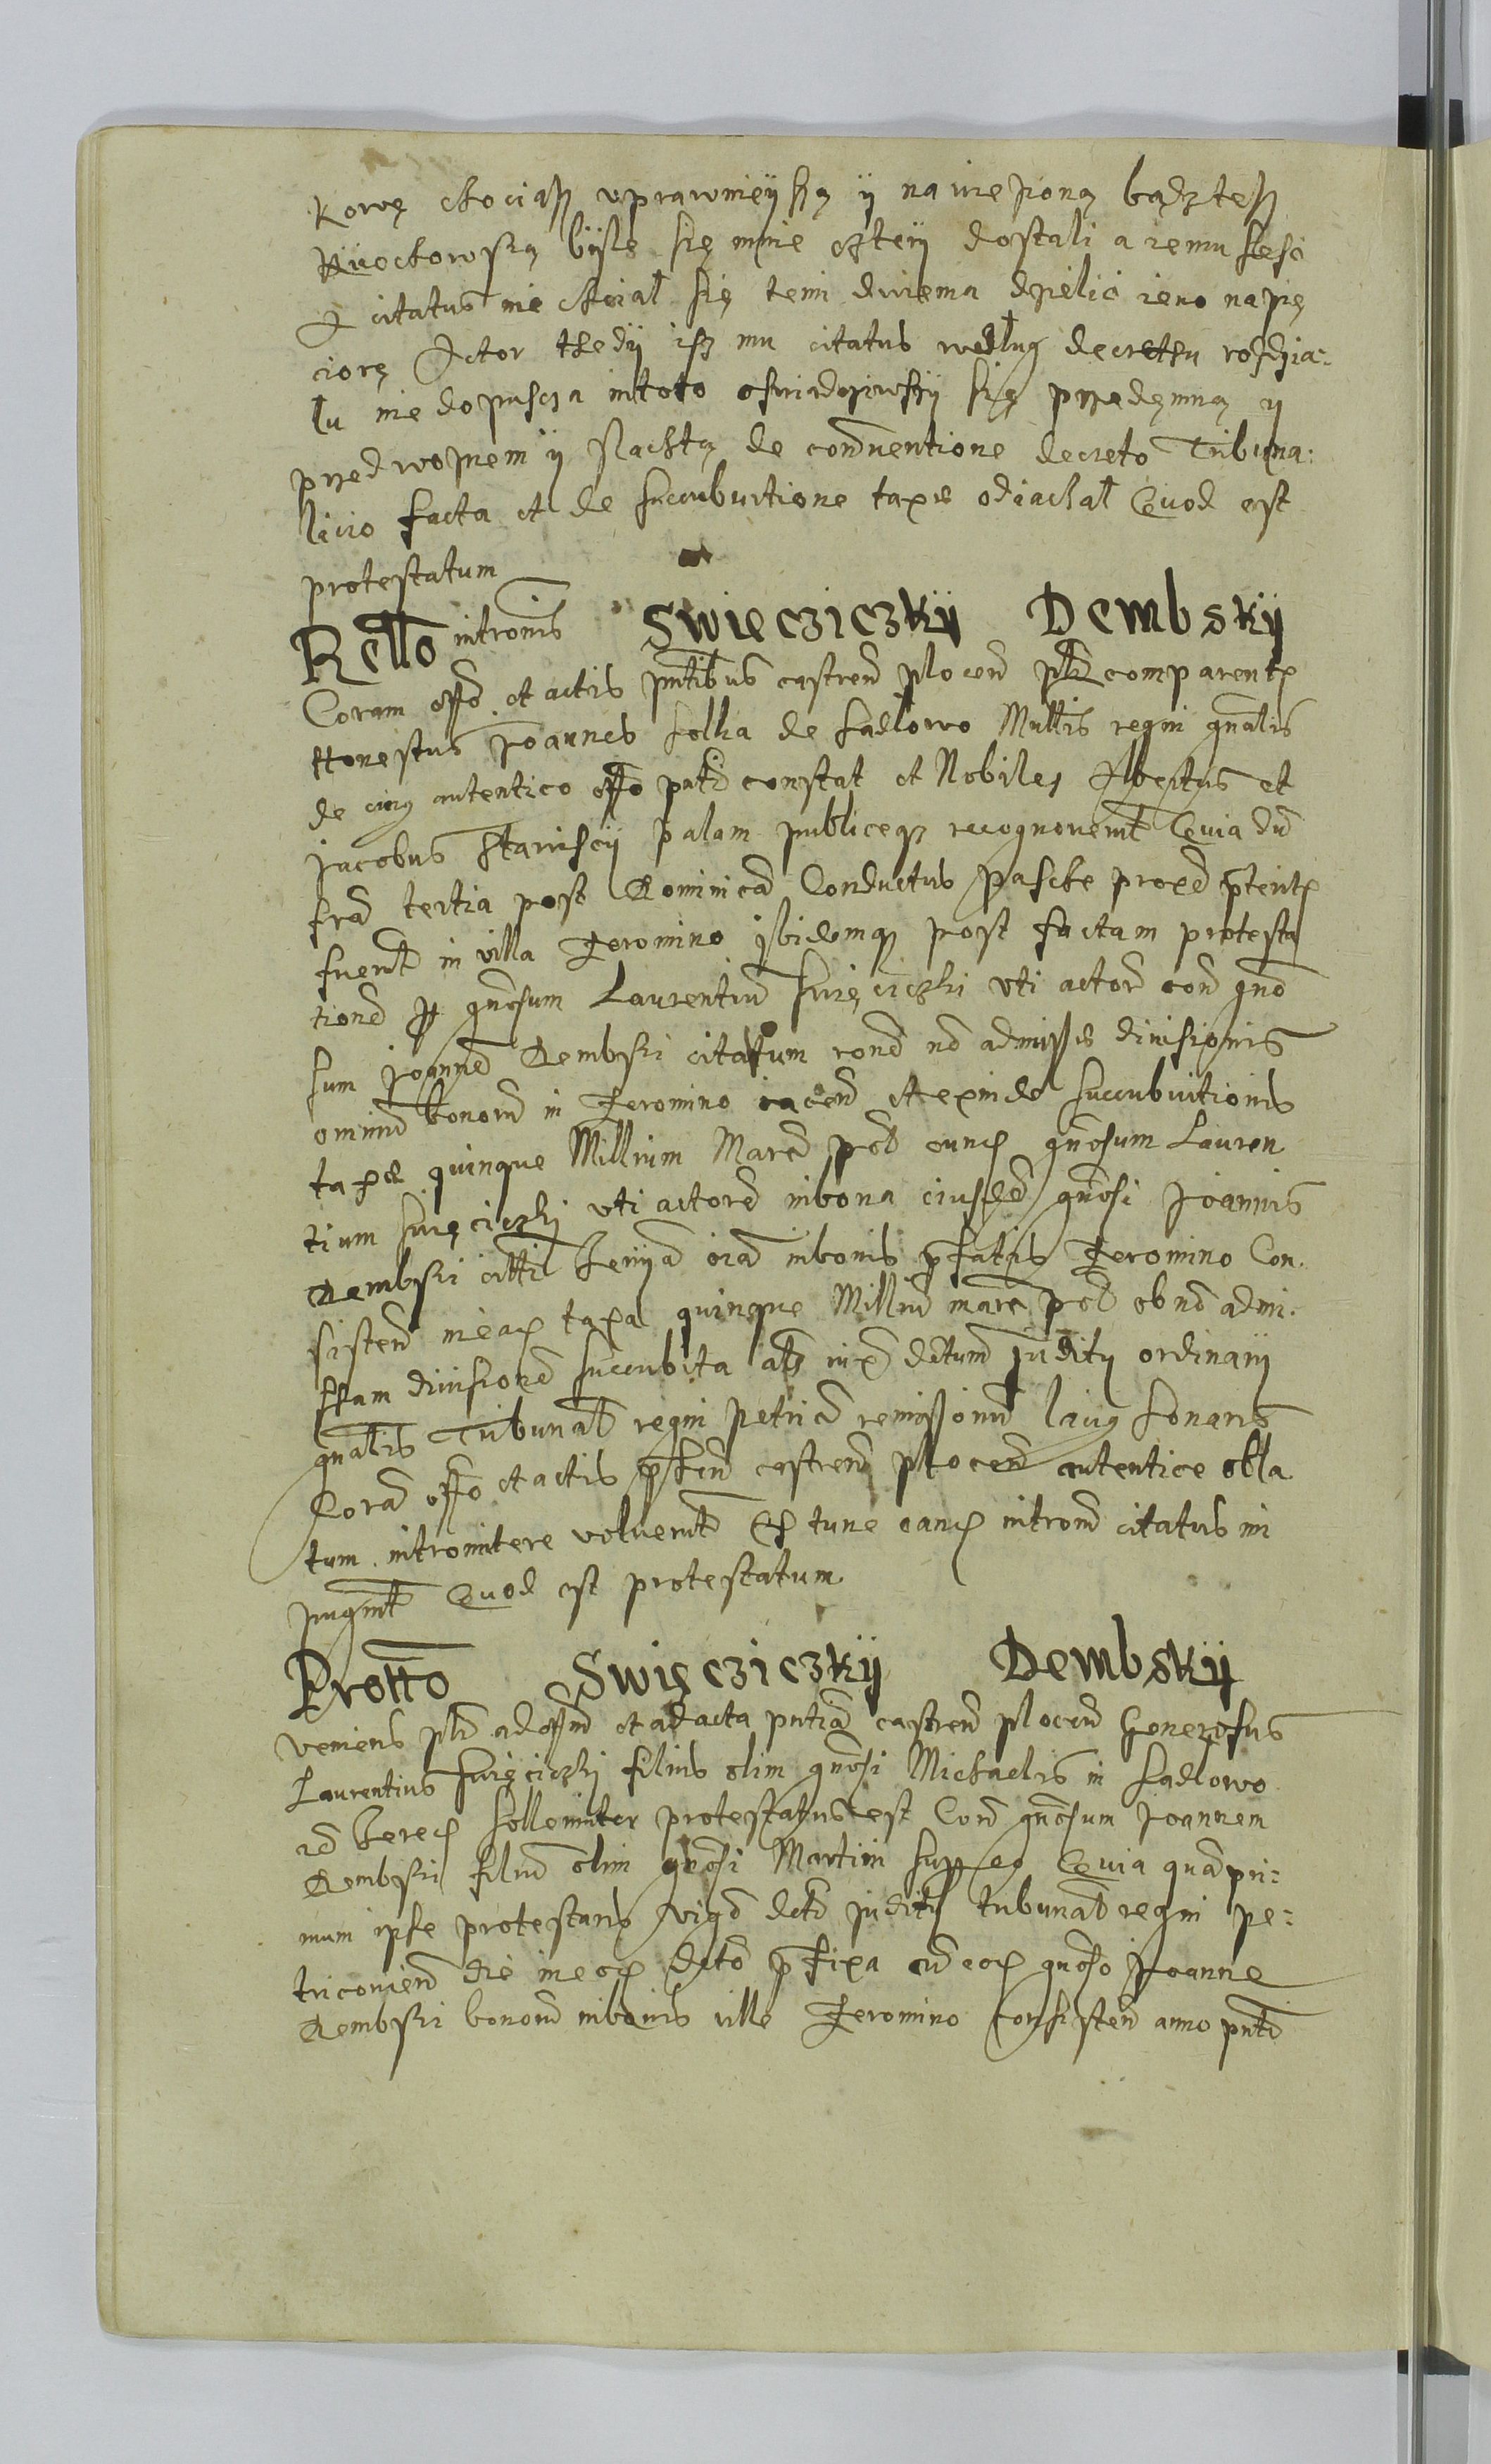 kowę chociaß vprawnieÿ ßą ÿ na wiezioną bądz teß
Kuchowską bysie się mnie czteÿ dostali a iemu sesc
A citatus nie chciał się temi dwiema dzielic ieno na pię
ciorę Actor thedÿ isz mu citatus według decretu rosdzia:
łu nie dopuscza in toto oswiadcziwßÿ się przedęmną ÿ
przed woznem ÿ slachtą de conventione decreto Tribuna:
licio facta et de succubutione taxæ odiachał Quod est
protestatum
Rello intromis Swiecziczkÿ Dembskÿ
Coram offo et actis pntibus castren plocen psl comparen
Honestus Joannes de Sadlowo Mltis regni gnalis
de cuius autentico offo pnti constat et Nobiles Albertus et
Jacobus palam publiceq recognoverut Quia du
fria tertia post Dominica Conductus Pasche proxe pterit
fuerut in villa Jeromino ibidemq post factam protesta
tione p gnosum Laurentiu Swięciczki vti actore con gno
sum Joanne Dembski citatum rone no admissæ divisionis
omniu bonoru in Jeromino iacen et exinde succubuitionis
taxæ quinque Millium Marc pol eunde gnosum Lauren
tium Swięciczki vti actore in bona eiusde gnosi Joannis
Dembski citti in bonis pfatis Jeromino Con.
sisten in ea taxa quinque Milliu marc pol ob no admi.
ssam divisione succubita iux detum Juditÿ ordinarÿ
gnalis Tribunal regni Petrico remissionu
Cora offo et actis castren plocen autentice obla
tum intromitere voluerut Et tunc eande intromi citatus im
pugnt Quod est protestatum
Protto Swięcziczkÿ Dembskÿ
veniens psl ad offm et ad acta pntia castren plocen Generosus
Laurentius Swięciczki filius olim gnosi Michaelis in Sadlowo
sollemniter protestatus est Con gnosum Joannem
Dembski filiu olim gnosi Martini Quia quampri:
mum ipse protestans vigo deti juditÿ tribunal regni pe:
triconien die in eo deto pfixa cu eo gnoso Joanne
Dembski bonoru in bonis ville Jeromino consisten anno pnti